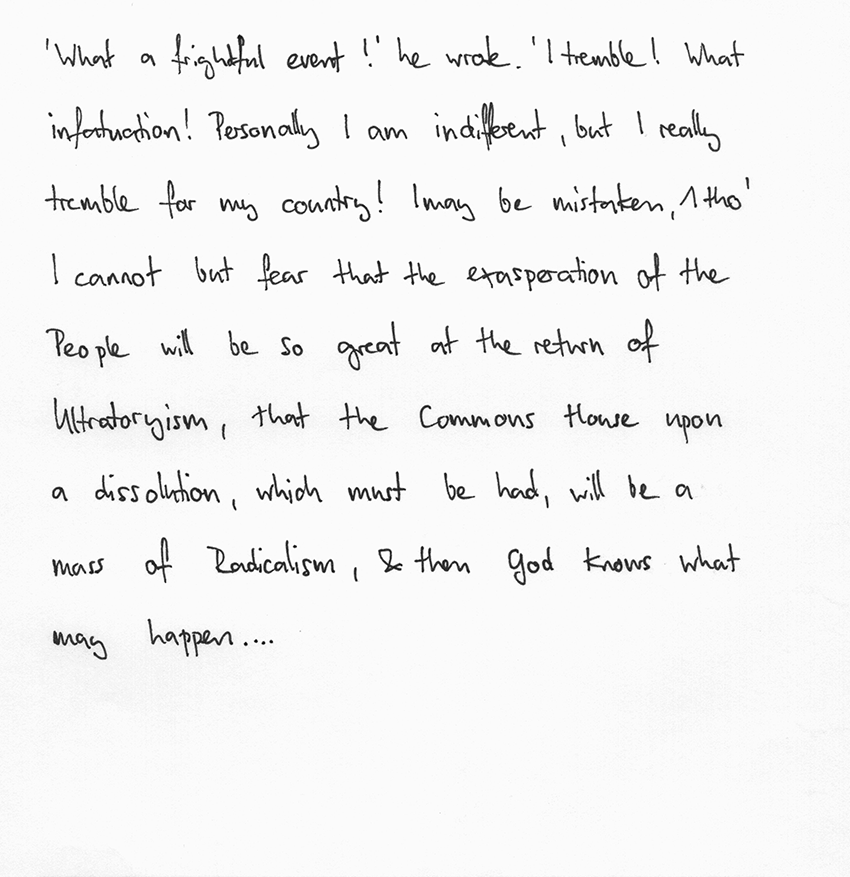 'What a frightful event!' he wrote. 'I tremble! What
infatuation! Personally I am indifferent, but I really
tremble for my country! I may be mistaken, tho'
I cannot but fear that the exasperation of the
People will be so great at the return of
Ultratoryism, that the Commons House upon
a dissolution, which must be had, will be a
mass of Radicalism, & then God knows what
may happen....